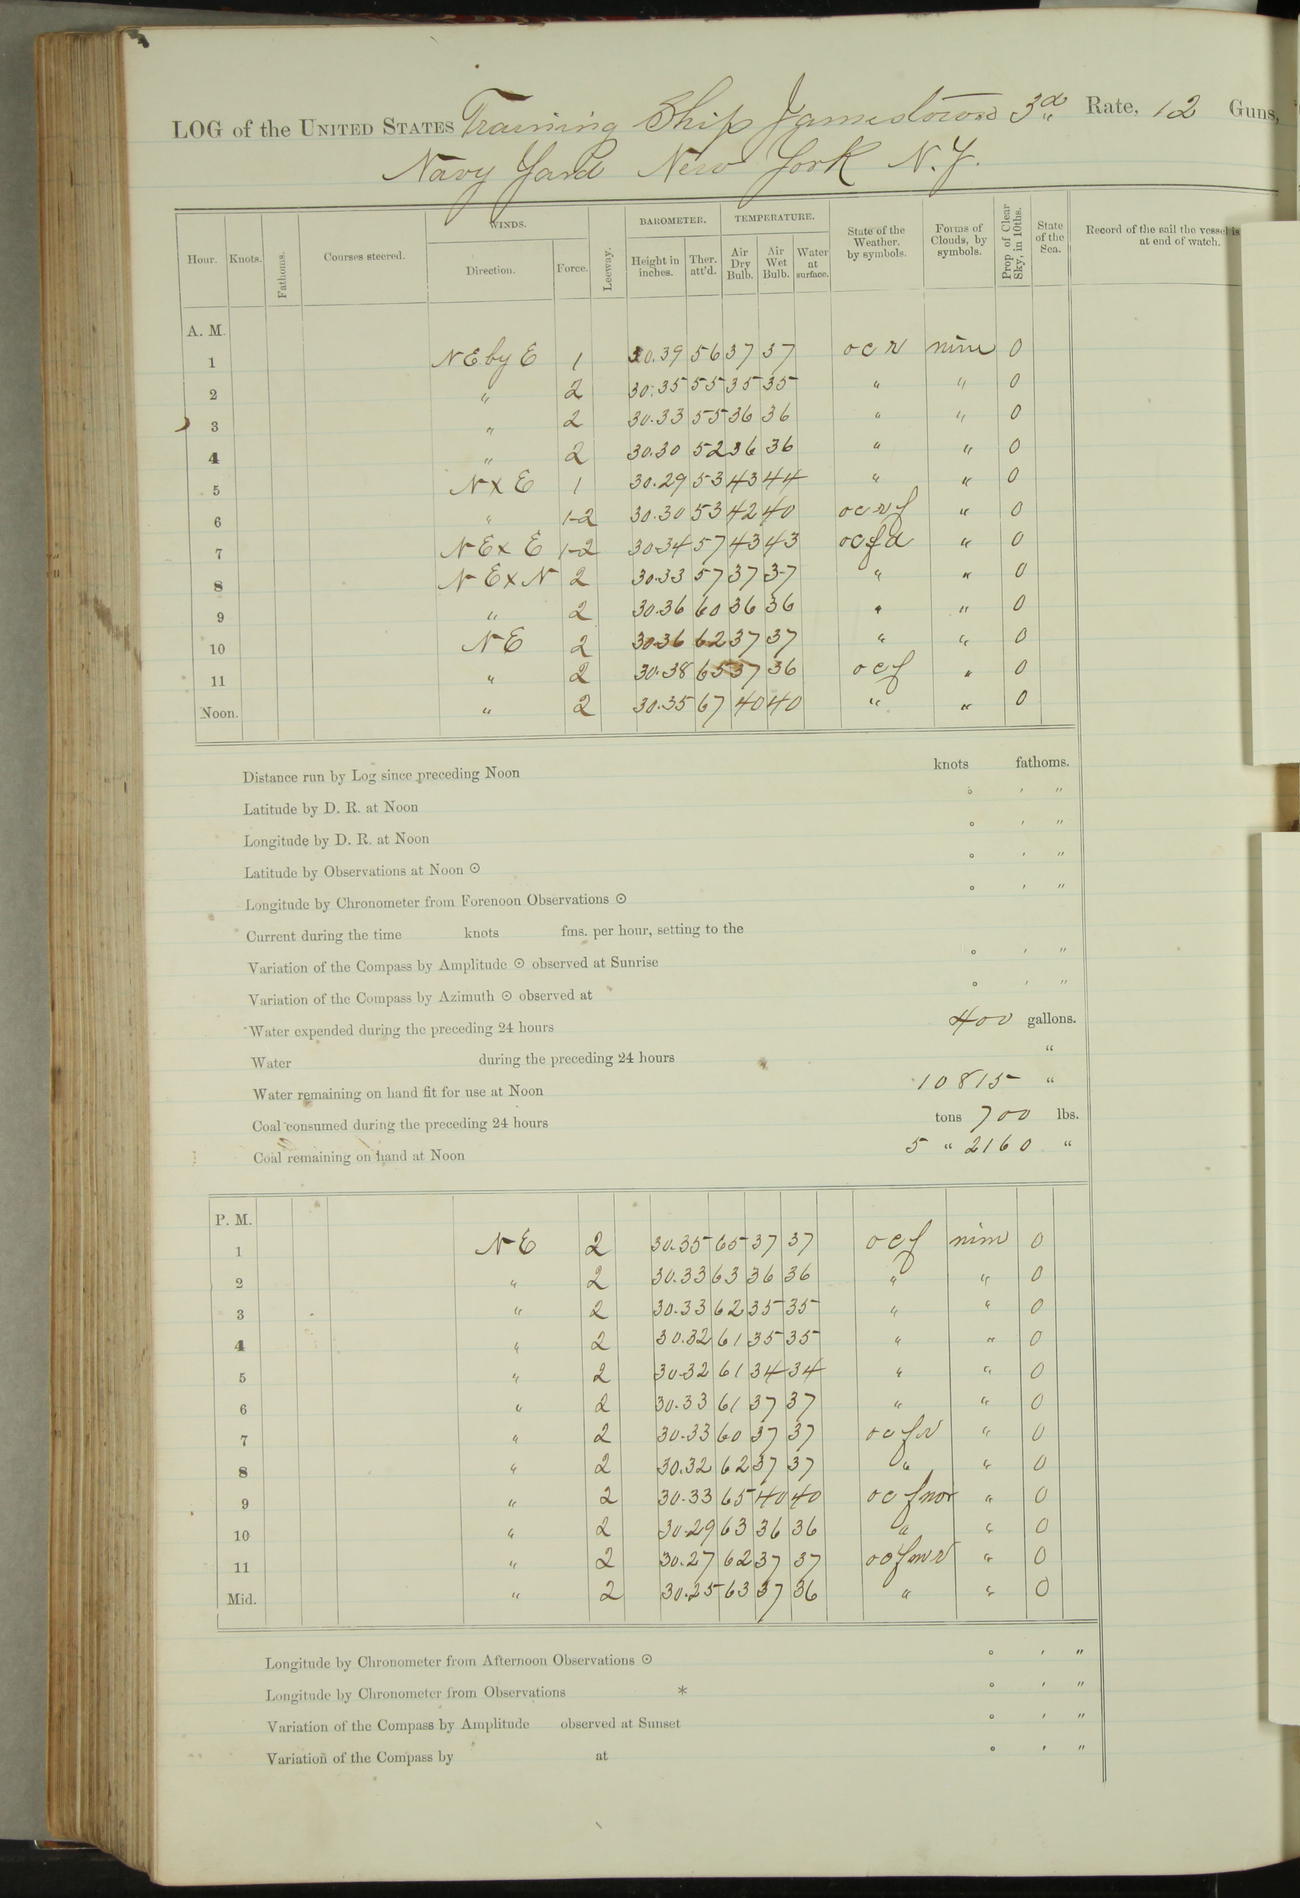 LOG of the UNITED STATES Training Ship Jamestown 3d Rate, 12 Guns,
Navy Yard New York N.Y.
Hour. Knots. Fathoms. Courses steered. WINDS. Direction. Force. Leeway. BAROMETER. Height in inches. Ther. att'd. TEMPERATURE. Air Dry Bulb. Air Wet Bulb. Water at surface. State of the Weather, by symbols. Forms of Clouds, by symbols. Prop of Clear Sky, in 10ths. State of the Sea. Record of the sail the vessel is at end of watch.
A. M.
1 NE by E 1 30.39 56 37 37 ocr nim 0
2 " 2 30.35 55 35 35 " " 0
3 " 2 30.33 55 36 36 " " 0
4 " 2 30.30 52 36 36 " " 0
5 NxE 1 30.29 53 43 44 " " 0
6 " 1-2 30.30 53 42 40 ocrf " 0
7 NExE 1-2 30.34 57 43 43 ocfd " 0
8 NExN 2 30.33 57 37 37 " " 0
9 " 2 30.36 60 36 36 " " 0
10 NE 2 30.36 62 37 37 " " 0
11 " 2 30.38 65 37 36 ocf " 0
Noon. " 2 30.35 67 40 40 " " 0
Distance run by Log since preceding Noon knots fathoms.
Latitude by D. R. at Noon ° ' "
Longitude by D. R. at Noon ° ' "
Latitude by Observations at Noon ☉ ° ' "
Longitude by Chronometer from Forenoon Observations ☉ ° ' "
Current during the time knots fms. per hour, setting to the
Variation of the Compass by Amplitude ☉ observed at Sunrise ° ' "
Variation of the Compass by Azimuth ☉ observed at ° ' "
Water expended during the preceding 24 hours 400 gallons.
Water during the preceding 24 hours "
Water remaining on hand fit for use at Noon 10815 "
Coal consumed during the preceding 24 hours tons 700 lbs.
Coal remaining on hand at Noon 5 " 2160 "
P. M.
1 NE 2 30.35 65 37 37 ocf nim 0
2 " 2 30.33 63 36 36 " " 0
3 " 2 30.33 62 35 35 " " 0
4 " 2 30.32 61 35 35 " " 0
5 " 2 30.32 61 34 34 " " 0
6 " 2 30.33 61 37 37 " " 0
7 " 2 30.33 60 37 37 ocfr " 0
8 " 2 30.32 62 37 37 " " 0
9 " 2 30.33 65 40 40 ocfmr " 0
10 " 2 30.29 63 36 36 " " 0
11 " 2 30.27 62 37 37 ocfmr " 0
Mid. " 2 30.25 63 37 36 " " 0
Longitude by Chronometer from Afternoon Observations ☉ ° ' "
Longitude by Chronometer from Observations * ° ' "
Variation of the Compass by Amplitude observed at Sunset ° ' "
Variation of the Compass by at ° ' "